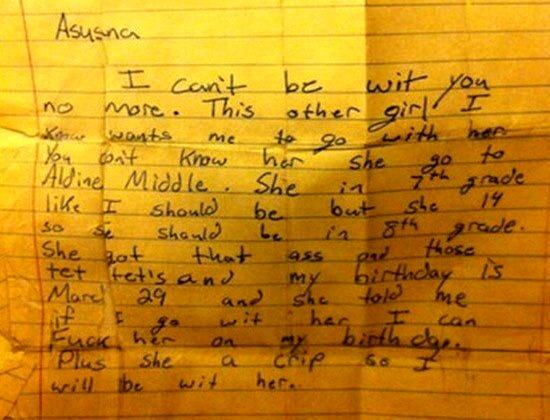 Asusna
I can't be wit you
no more. This other girl I
know wants me to go with her
You don't know her she go to
Aldine Middle. She in 7th grade
like I should be but she 14
so se should be in 8th grade.
[omitted]
[omitted] and my birthday is
Marc 29 and she told me
[omitted]
[omitted]
Plus she a crip so I
will be wit her.